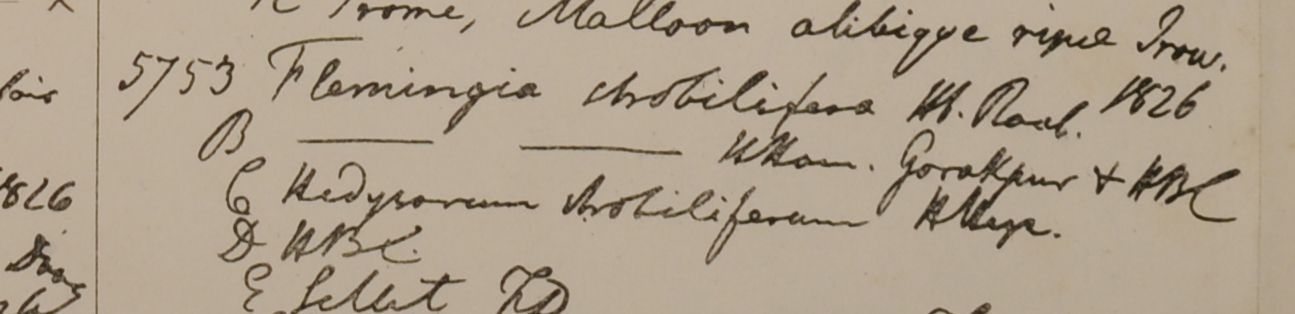 Prome, Malloon alibique ripae Iraw. 1826
5753 Flemingia strobilifera Hb. Roxb.
B ——— ——— HHam. Gorakpur & HBC
C Hedysarum strobiliferum HHeyn.
826
D HBC.
E Sillet FD